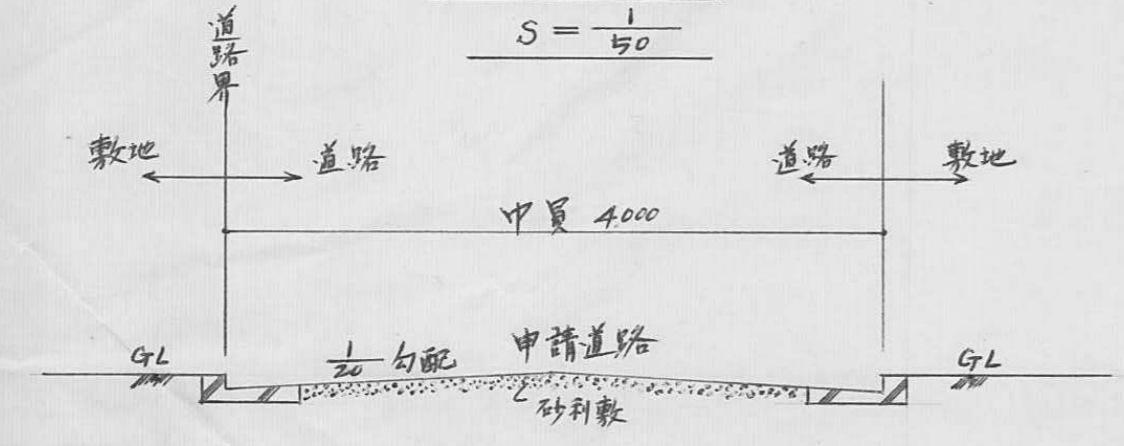 道路界
S = 1/50
敷地
道路
道路
敷地
巾員 4.000
GL
1/20 勾配
申請道路
GL
砂利敷